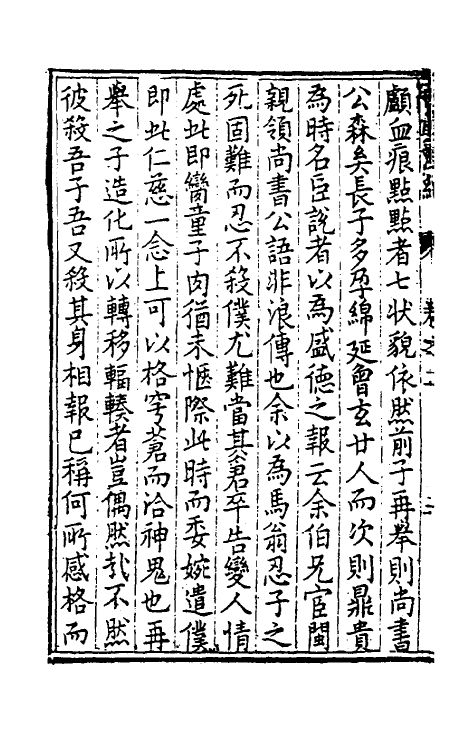 顱血痕點點者七狀貌依然前子再舉則尚書
公森矣長子多孕綿延曾玄廿人而次則鼎貴
為時名臣說者以為盛德之報云余伯兄宦閩
親領尚書公語非浪傳也余以為馬翁忍子之
死固難而忍不殺僕尤難當其蒼卒告變人情
處此即臠童子肉猶未愜際此時而委婉遣僕
即此仁慈一念上可以格穹蒼而洽神鬼也再
舉之子造化所以轉移輻輳者豈偶然哉不然
彼殺吾子吾又殺其身相報已稱何所感格而
卷之二